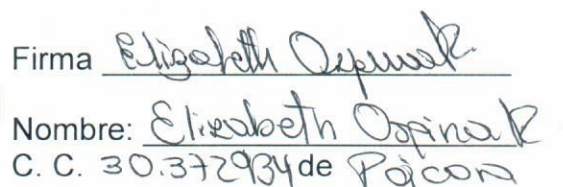 Firma Elizabeth Ospina R.
Nombre: Elizabeth Ospina R
C. C. 30.372934 de